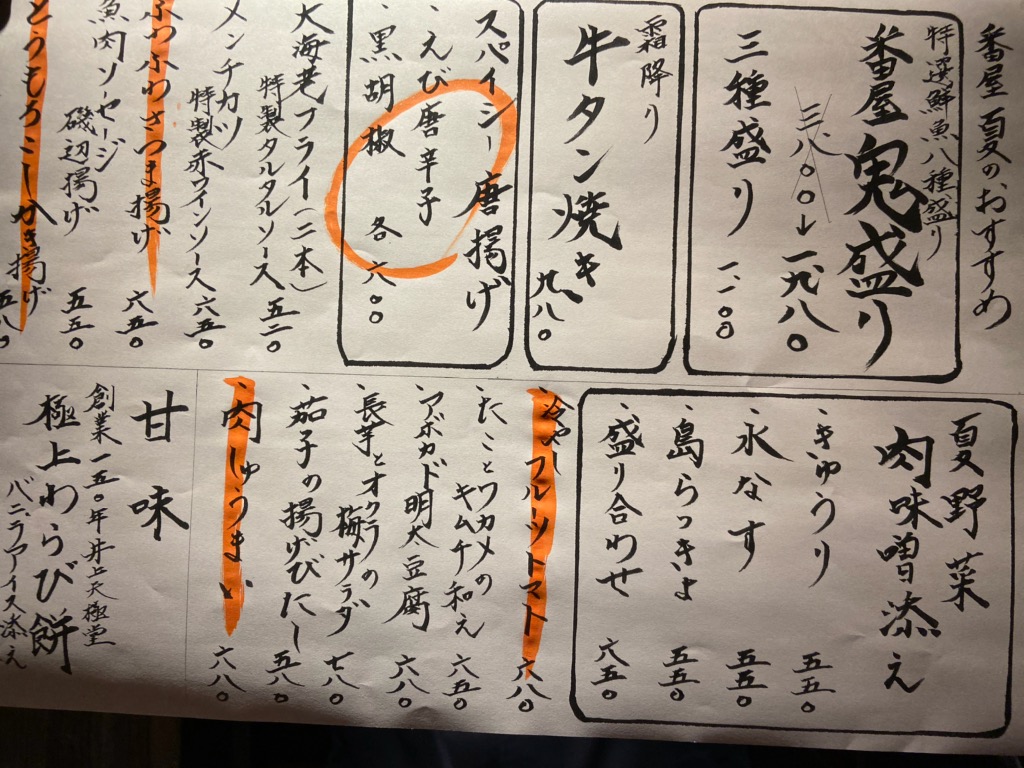 番屋 夏のおすすめ
特選鮮魚八種盛り
番屋鬼盛り
三八〇〇→一九八〇
三種盛り 一一〇〇
霜降り
牛タン焼き 九八〇
スパイシー唐揚げ
・えび唐辛子
・黒胡椒 各六〇〇
大海老フライ(二本)
特製タルタルソース 五二〇
メンチカツ
特製赤ワインソース 六五〇
ふわふわさつま揚げ 六五〇
魚肉ソーセージ
磯辺揚げ 五五〇
とうもろこしかき揚げ 五八〇
夏野菜
肉味噌添え
・きゅうり 五五〇
・水なす 五五〇
・島らっきょ 五五〇
・盛り合わせ 六五〇
・冷やしフルーツトマト 六八〇
・たことワカメの
キムチ和え 六五〇
・アボカド明太豆腐 六八〇
・長芋とオクラの
梅サラダ 七八〇
・茄子の揚げびたし 五八〇
・肉しゅうまい 六八〇
甘味
創業一五〇年井上天極堂
極上わらび餅
バニラアイス添え